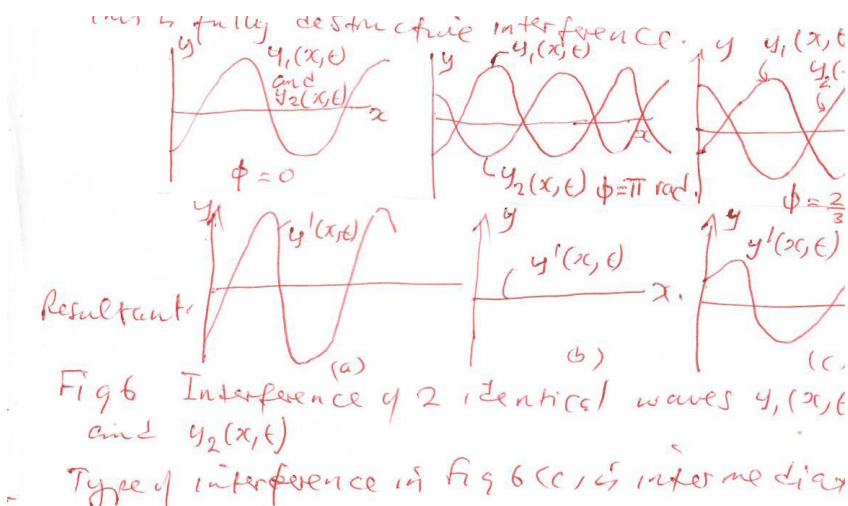 This is fully destructive interference.
y y₁(x,t) and y₂(x,t) x
ϕ = 0
y y₁(x,t) x
y₂(x,t) ϕ=π rad.
y y₁(x,t
y₂(
ϕ = 2/3
Resultant
y y'(x,t)
(a)
y y'(x,t) x.
(b)
y y'(x,t)
(c)
Fig 6 Interference of 2 identical waves y₁(x,t
and y₂(x,t)
Type of interference in Fig 6(c) is intermediat